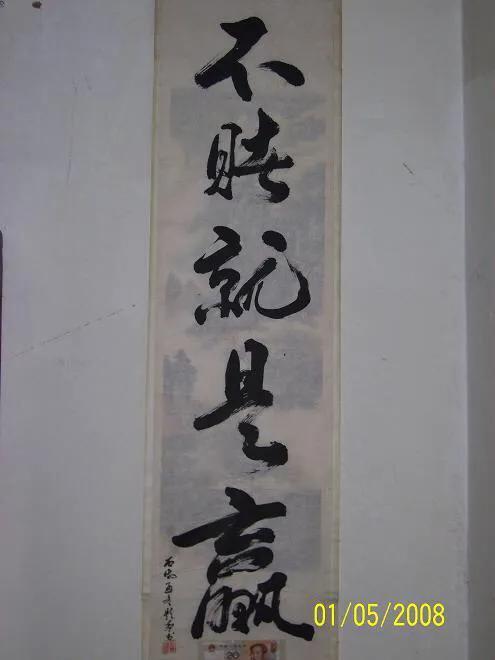 不賭就是贏
01/05/2008
20